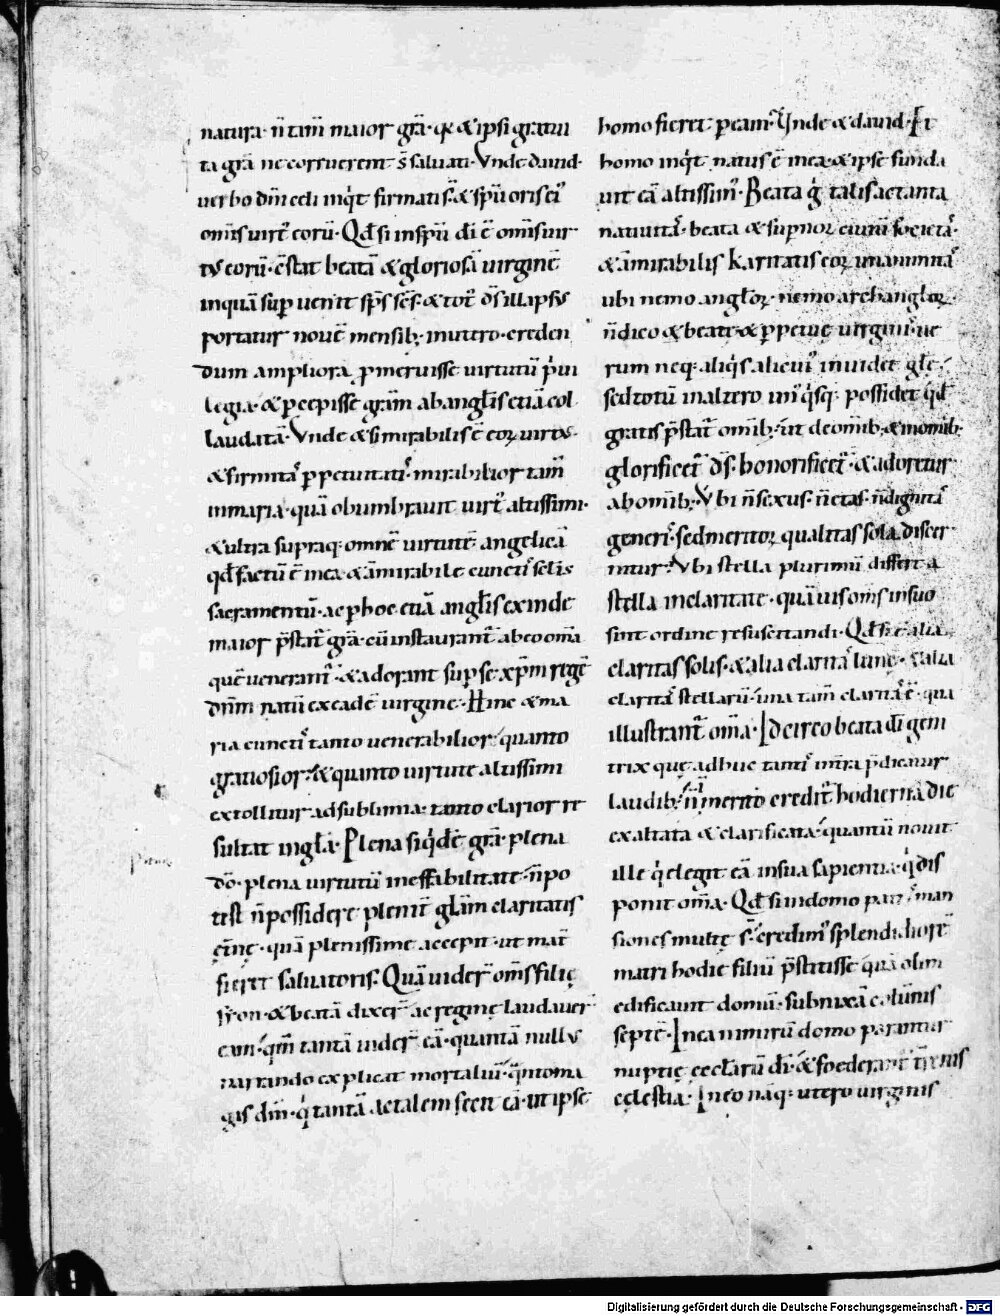 natura· n̄ tam̄ maior gr̄a· q̨ & ipsi gratui
ta gr̄a ne corruerent s̄ saluati· Vnde dauid·
uerbo dn̄i cęli inq̇t firmati s̄· & sp̄u oris ei᾽
om̄is uirt᾽ eorū· Qd̄ si in sp̄u dī ē om̄is uir
tus eorū· c̄stat beatā & gloriosā uirginē
inquā sup̱ uenit sp̄s sc̄s· & tot᾽ d̄s illapsus
portatur nouē mensib; in utero· creden
dum ampliora p̱meruisse uirtutū p̍ui
legia· & p̱cepisse grām ab angl̄is etiā col
laudatā· Vnde & si mirabilis ē eoꝝ uirtus·
& firmitas p̱petuitatis· mirabilior tam̄
in maria· quā obumbrauit uirt᾽ altissimi·
& ultra supraq· omnē uirtutē angelicā
qd̄ factū ē in ea· & āmirabile cunctis sęlis
sacramentū· ac p̱ hoc etiā angl̄is exinde
maior p̄stat᾽ gr̄a· cū instaurant᾽ ab eo om̄a
quē uenerant᾽· & adorant sup̱ se xp̄m regē
dn̄m natū ex eadē uirgine· Hinc & ma
ria cunctis tanto uenerabilior· quanto
gratiosior· & quanto uirtute altissimi
extollitur ad sublimia· tanto clarior re
sultat in gl̄a· Plena siq̇dē gr̄a· plena
dō· plena uirtutū ineffabilitate· n̄ po
test n̄ possidere plenit᾽ glām claritatis
ęt̄nę· quā plenissime accepit· ut mat̄
fieret saluatoris· Quā uider᾽ om̄s filię
syon· & beatā dixer᾽ ac reginę laudauer᾽
eam· qm̄ tantā uider᾽ eā· quantā nullus
narrando explicat mortaliū· qm̄ toma
gis dm̄· q̇ tantā ac talem fecit eā· ut ipse
homo fieret p̱ eam· Vnde & dauid· Et
homo inq̇t natus ē in ea· & ipse funda
uit eā altissim᾽· Beata g̍ talis ac tanta
natiuitas· beata & sup̱noꝝ ciuiū societas·
& āmirabilis karitatis eoꝝ unanimitas
ubi nemo angl̄oꝝ· nemo archangl̄oꝝ·
n̄ dico & beatę & p̱petuę uirginis· ue
rum neq· aliq̇s alicui᾽ inuidet gl̄ę·
sed totū in altero un᾽ q̇sq· possidet qd̄
gratis p̄stat᾽ omib;· ut d̄s in omib; & in omib;
glorificet᾽ d̄s· honorificet᾽· & adoretur
ab omib;· Vbi n̄ sexus· n̄ ętas· n̄ dignitas
generis· sed meritoꝝ qualitas sola discer
nitur· Vbi stella plurimū differt a
stella in claritate· quāuis om̄s in suo
sint ordine resuscitandi· Qd̄ si ē alia
claritas solis· & alia claritas lunę· & alia
claritas stellarū· una tam̄ claritas ē· qua
illustrant᾽ om̄a· Idcirco beata dī geni
trix quę adhuc tantis int̄ra p̄dicatur
laudib; n̄ inmerito credit᾽ hodierna die
exaltata & clarificata· quantū nouit
ille q̇ elegit eā in sua sapientia· q̇ dis
ponit om̄a· Qd̄ si in domo patris man
siones multę s̄· credim᾽ splendidiorē
matri hodie filiū p̄stitisse· quā olim
edificauit domū· subnixā colūnis
septē· In ea nimirū domo parantur
nuptię ecclārū dī· & foederant᾽ t̄renis
cęlestia· In eo naq· utero uirginis